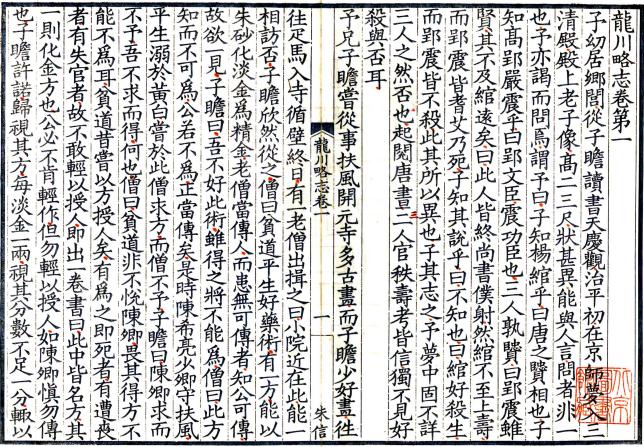 龍川略志卷第一
予幼居鄉閭從子瞻讀書天慶觀治平初在京師夢入三
清殿殿上老子像高二三尺狀甚異能與人言問者非一
也予亦謁而問焉謂予曰子知楊綰乎曰唐之賢相也子
知高郢嚴震乎曰郢文臣震功臣也二人孰賢曰郢雖
賢其不及綰遠矣曰此人皆終尚書僕射然綰不至上壽
而郢震皆耆艾乃死子知其說乎曰不知也曰綰好殺生
而郢震皆不殺此其所以異也子其志之予夢中固不詳
三人之然否也起閱唐書二人官秩壽者皆信獨不見好
殺與否耳
予兄子瞻嘗從事扶風開元寺多古畫而子瞻少好畫往
龍川略志卷一
一
朱信
往疋馬入寺循壁終日有一老僧出揖之曰小院近在此能一
相訪否子瞻欣然從之僧曰貧道平生好藥術有一方能以
朱砂化淡金為精金老僧當傳人而患無可傳者知公可傳
故欲一見子瞻曰吾不好此術雖得之將不能為僧曰此方
知而不可為公若不為正當傳矣是時陳希亮少卿守扶風
平生溺於黃白嘗於此僧求方而僧不予子瞻曰陳卿求而
不予吾不求而得何也僧曰貧道非不悅陳卿畏其得方不
能不為耳貧道昔嘗以方授人矣有為之即死者有遭喪
者有失官者故不敢輕以授人即出一卷書曰此中皆名方其
一則化金方也公必不肯輕作但勿輕以授人如陳卿慎勿傳
也子瞻許諾歸視其方每淡金一兩視其分數不足一分輒以